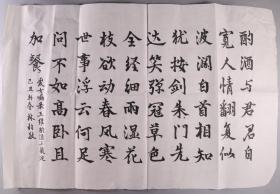 酌酒与君君自
寬人情翻复似
波阑白首相知
犹按剑朱门先
达笑弹冠草色
全经细雨湿花
枝欲动春风寒
世事浮云何足
问不如高卧且
加餐
己丑年春